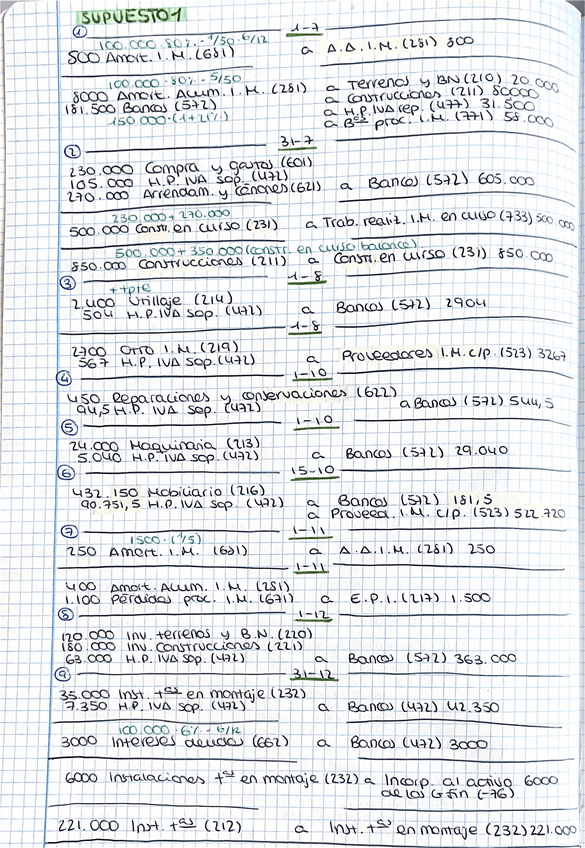 SUPUESTO 1
① 1-7
100.000·80%·1/50·6/12
800 Amort. I.M. (681) a A.A.I.M. (281) 800
100.000·80%·5/50
8000 Amort. Acum. I.M. (281) a Terrenos y BN (210) 20.000
181.500 Bancos (572) a Construcciones (211) 80000
150.000·(1+21%) a H.P. IVA rep. (477) 31.500
a Bºˢ proc. I.M. (771) 58.000
② 31-7
230.000 Compra y gastos (601)
105.000 H.P. IVA sop. (472)
270.000 Arrendam. y cánones (621) a Bancos (572) 605.000
230.000+270.000
500.000 Constr. en curso (231) a Trab. realiz. I.M. en curso (733) 500.000
500.000+350.000 (constr. en curso balance)
850.000 Construcciones (211) a Constr. en curso (231) 850.000
③ 1-8
++pte
2.400 Utillaje (214)
504 H.P. IVA sop. (472) a Bancos (572) 2904
1-8
2700 Otro I.M. (219)
567 H.P. IVA sop. (472) a Proveedores I.M. c/p. (523) 3267
④ 1-10
450 Reparaciones y conservaciones (622)
94,5 H.P. IVA sop. (472) a Bancos (572) 544,5
⑤ 1-10
24.000 Maquinaria (213)
5.040 H.P. IVA sop. (472) a Bancos (572) 29.040
⑥ 15-10
432.150 Mobiliario (216) a Bancos (572) 181,5
90.751,5 H.P. IVA sop. (472) a Proveed. I.M. c/p. (523) 522.720
⑦ 1-11
1500·(1/5)
250 Amort. I.M. (681) a A.A.I.M. (281) 250
1-11
400 Amort. Acum. I.M. (281)
1.100 Pérdidas proc. I.M. (671) a E.P.I. (217) 1.500
⑧ 1-12
120.000 Inv. terrenos y B.N. (220)
180.000 Inv. construcciones (221)
63.000 H.P. IVA sop. (472) a Bancos (572) 363.000
⑨ 31-12
35.000 Inst. tᵃˢ en montaje (232)
7.350 H.P. IVA sop. (472) a Bancos (472) 42.350
100.000·6%·6/12
3000 Intereses deudas (662) a Bancos (472) 3000
6000 Instalaciones tᵃˢ en montaje (232) a Incorp. al activo 6000
de los G fin (-76)
221.000 Inst. tᵃˢ (212) a Inst. tᵃˢ en montaje (232) 221.000